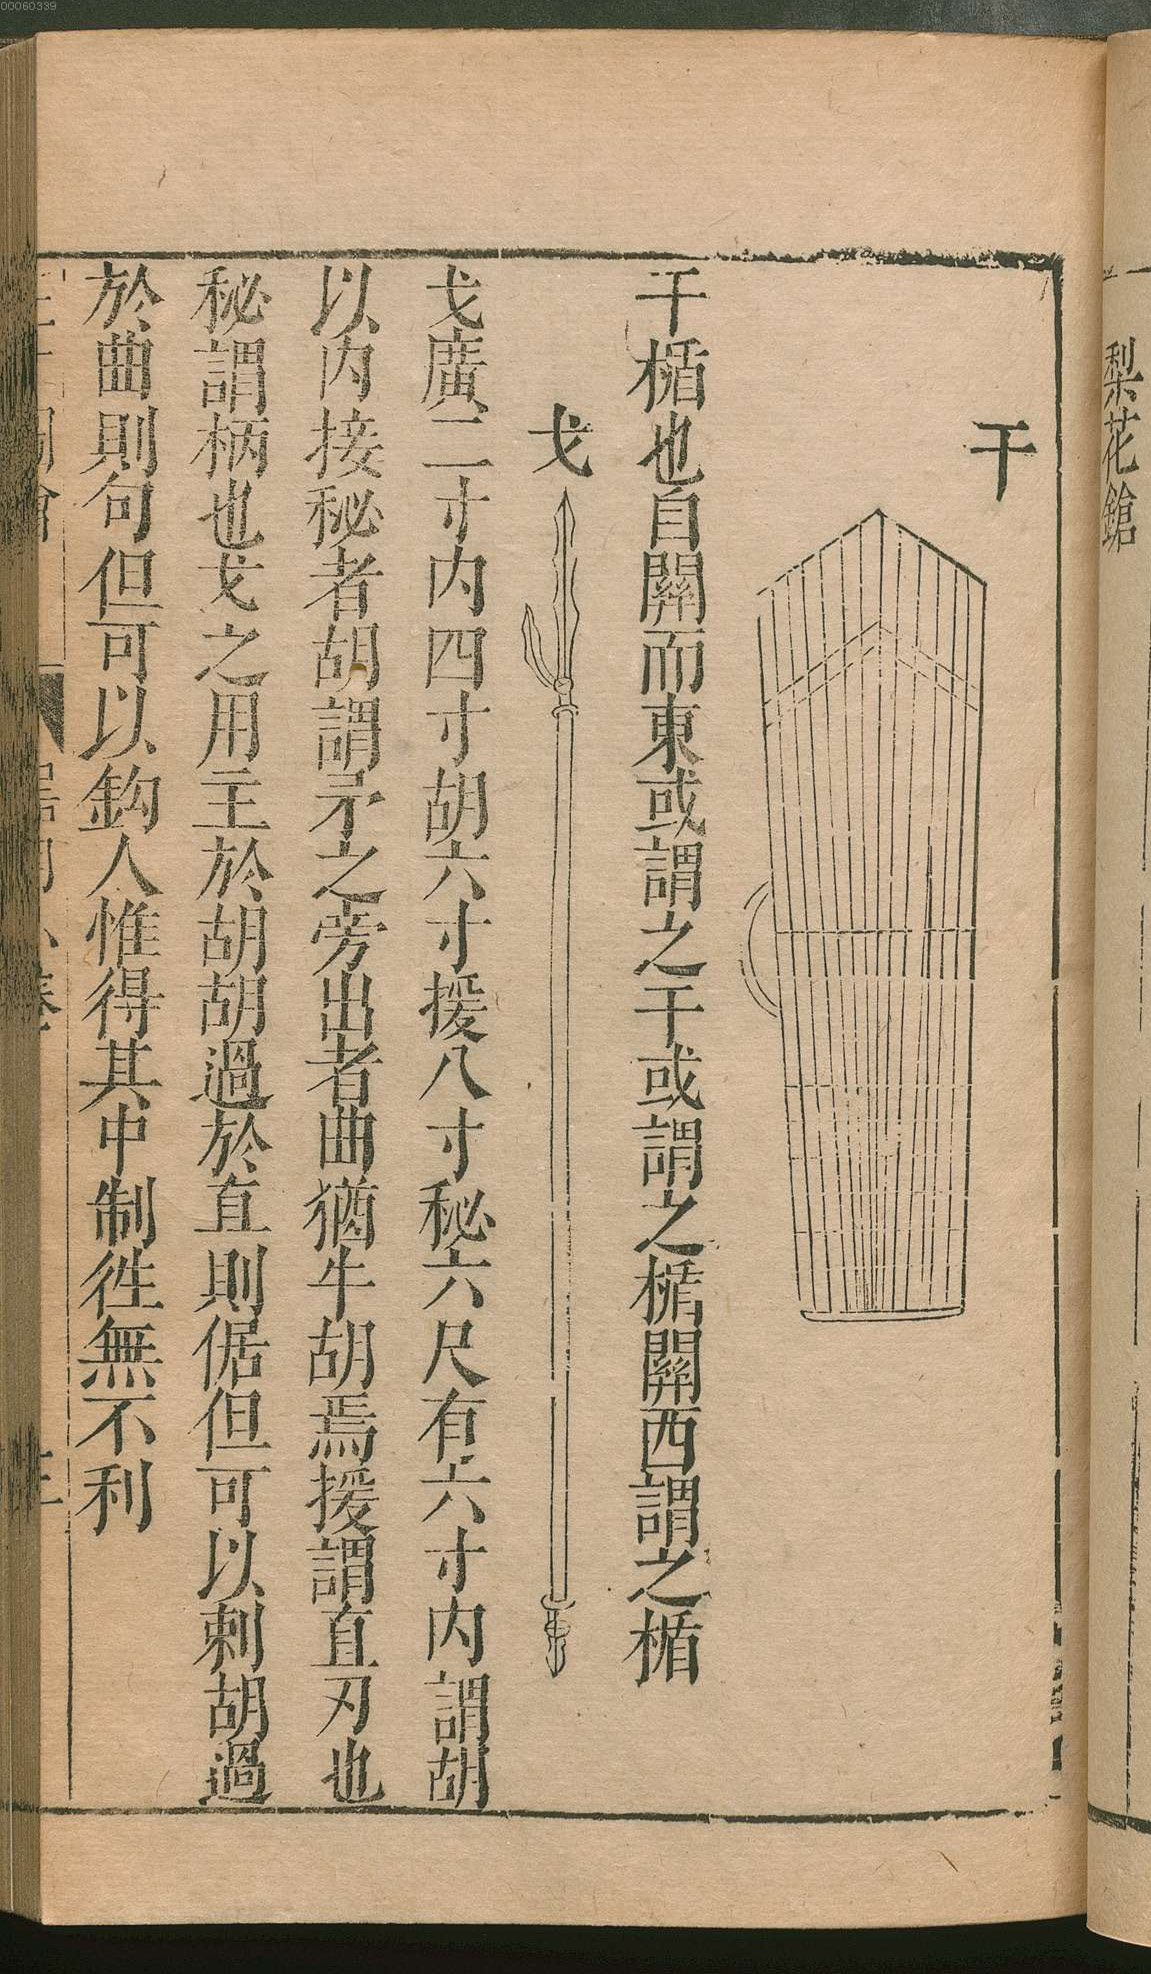 00060339
梨花鎗
干
干楯也自關而東或謂之干或謂之楯關西謂之楯
戈
戈廣二寸內四寸胡六寸援八寸秘六尺有六寸內謂胡
以內接秘者胡謂矛之旁出者曲猶牛胡焉援謂直刃也
秘謂柄也戈之用主於胡胡過於直則倨但可以刺胡過
於曲則句但可以鈎人惟得其中制徃無不利